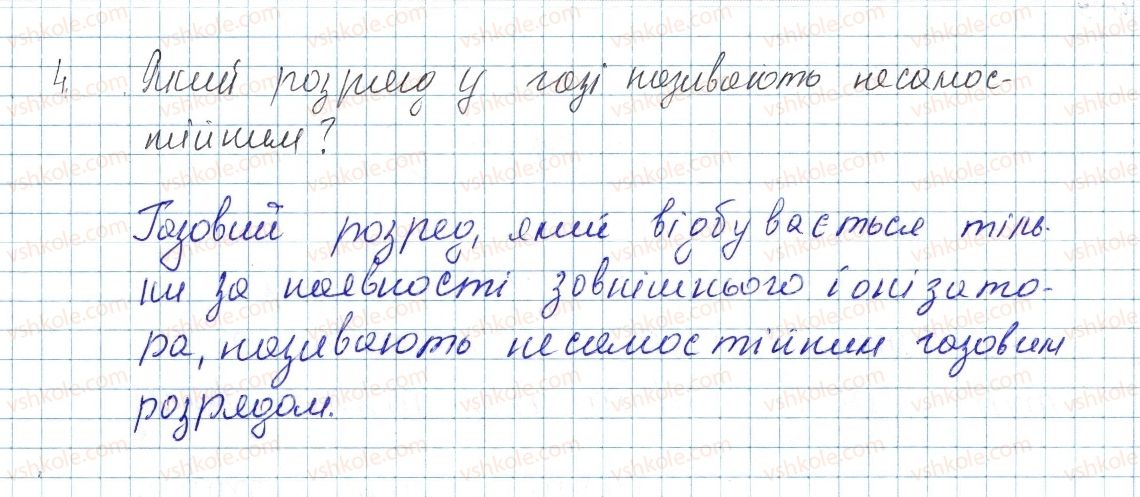 4. Який розряд у газі називають несамос-
тійним?
Газовий розряд, який відбувається тіль-
ки за наявності зовнішнього іонізато-
ра, називають несамостійним газовим
розрядом.